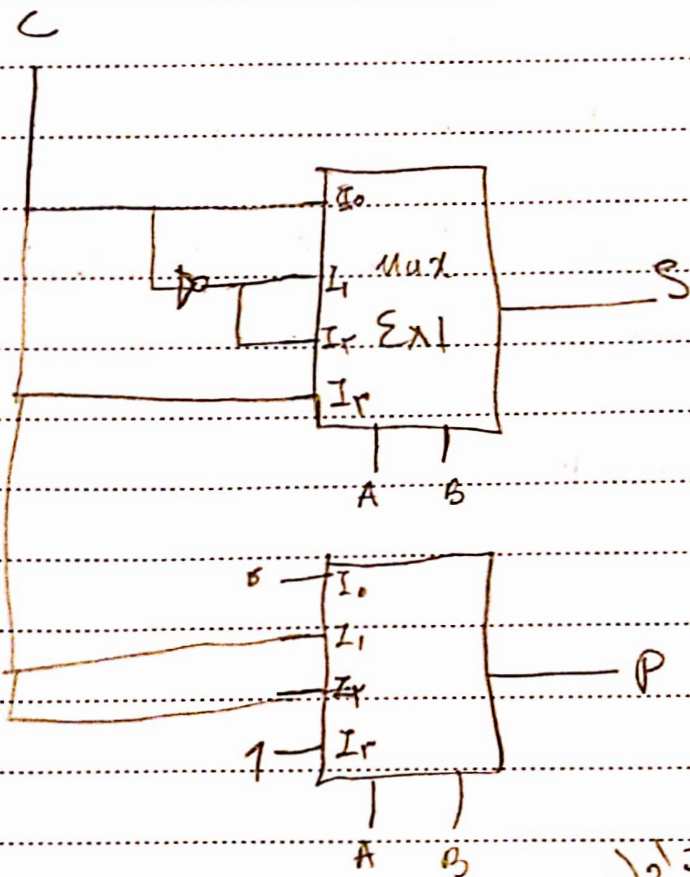 C
I₀
I₁ Mux
I٢ ٤x1
I٣
S
A B
0 I₀
I₁
I٢
1 I٣
P
A B